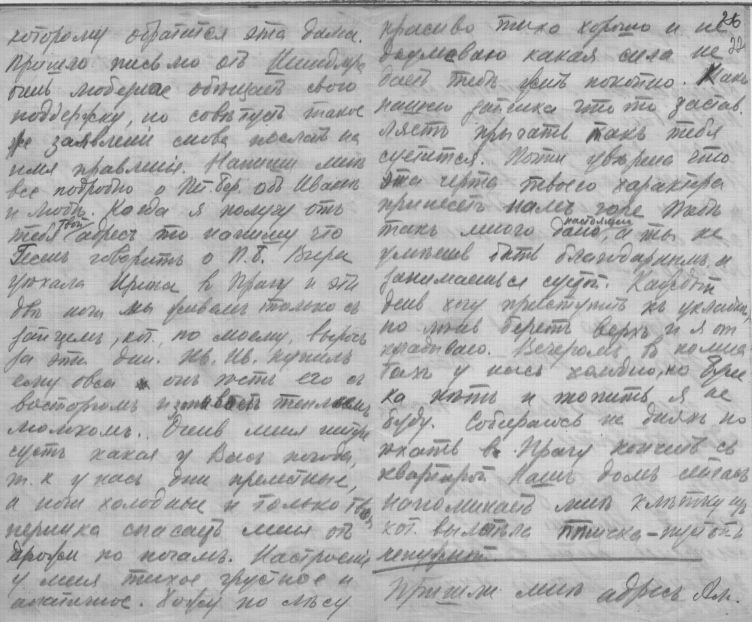 которому обратится эта дама.
Пришло письмо отъ
очень любезное обѣщаетъ свою
поддержку, но совѣтуетъ такое
же заявленіе снова послать на
имя правленія. Напиши мнѣ
все подробно о объ Иванѣ
и Любѣ. Когда я получу отъ
тебя твой адресъ то напишу что
говорить о П.Б. Вчера
уѣхала Ирина въ Прагу и эти
двѣ ночи мы ночевали только съ
зайцемъ, кот. по моему, выросъ
за эти дни. Ив. Ив. купилъ
ему овса онъ ѣстъ его съ
восторгомъ и запиваетъ теплымъ
молокомъ. Очень меня интере
суетъ какая у Васъ погода,
т.к у насъ дни прелестные,
а ночи холодные и только твоя
перинка спасаетъ меня отъ
дрожи по ночамъ. Настроеніе
у меня тихое грустное и
апатичное. Хожу по лѣсу
26
32
красиво тихо хорошо и не
додумываю какая сила не
даетъ тебѣ жить покойно. Какъ
нашего зайчика что то застав
ляетъ прыгать такъ тебя
суетится. Почти увѣрена что
эта черта твоего характера
принесетъ намъ горе. Тебѣ
такъ много дано настоящаго, а ты не
умѣешь быть благодарнымъ и
занимаешься суетой. Каждый
день хочу приступить къ укладкѣ,
но лѣнь беретъ верхъ и я от
кладываю. Вечеромъ въ комна
тахъ у насъ холодно, но
ка нѣтъ и топить я не
буду. Собираюсь на дняхъ по
ѣхать въ Прагу кончить съ
квартирой. Нашъ домъ сейчасъ
напоминаетъ мнѣ клѣтку изъ
кот. вылетѣла птичка – пустъ и
неприютенъ.
Пришли мнѣ адресъ Ал.